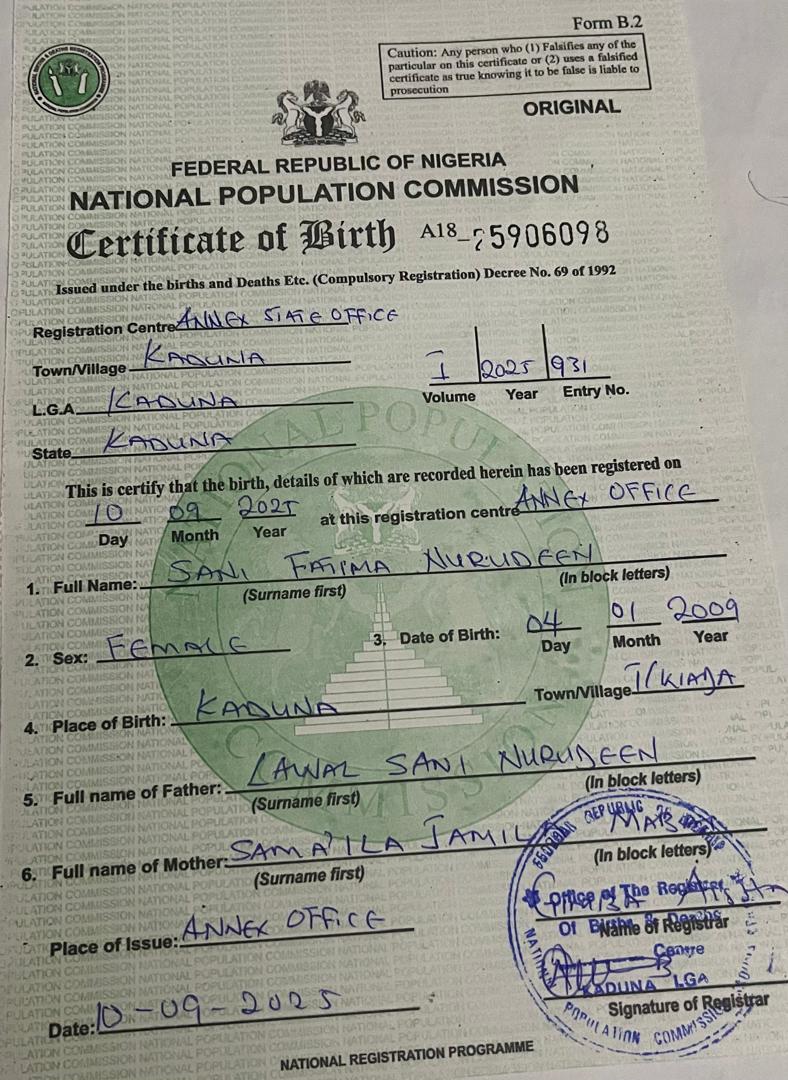 Form B.2
Caution: Any person who (1) Falsifies any of the
particular on this certificate or (2) uses a falsified
certificate as true knowing it to be false is liable to
prosecution
ORIGINAL
FEDERAL REPUBLIC OF NIGERIA
NATIONAL POPULATION COMMISSION
Certificate of Birth A18_25906098
Issued under the births and Deaths Etc. (Compulsory Registration) Decree No. 69 of 1992
Registration Centre ANNEX STATE OFFICE
Town/Village KADUNA
I 2025 931
Volume Year Entry No.
L.G.A KADUNA
State KADUNA
This is certify that the birth, details of which are recorded herein has been registered on
10 09 2025 at this registration centre ANNEX OFFICE
Day Month Year
1. Full Name: SANI FATIMA NURUDEEN
(Surname first) (In block letters)
2. Sex: FEMALE 3. Date of Birth: 04 01 2009
Day Month Year
4. Place of Birth: KADUNA Town/Village
5. Full name of Father: LAWAL SANI NURUDEEN
(Surname first) (In block letters)
6. Full name of Mother: SAMA'ILA JAMILA
(Surname first) (In block letters)
Office of The Registrar
Of Births & Deaths
Name of Registrar
Centre
KADUNA LGA
Place of Issue: ANNEX OFFICE
Signature of Registrar
Date: 10-09-2025
NATIONAL POPULATION COMMISSION
NATIONAL REGISTRATION PROGRAMME